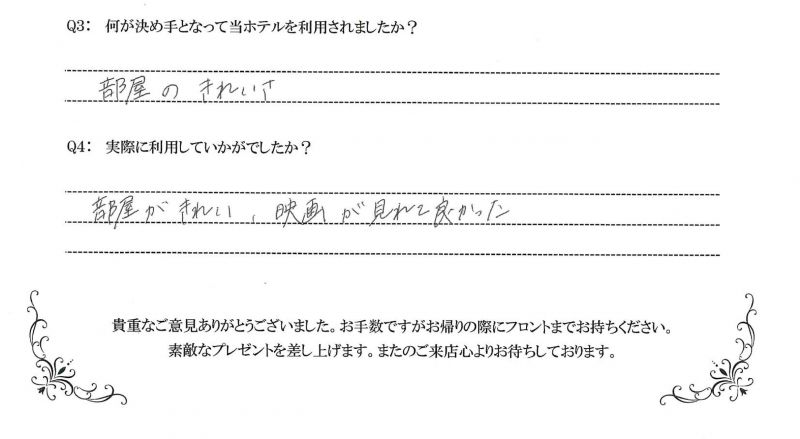 Q3： 何が決め手となって当ホテルを利用されましたか？
部屋の きれいさ
Q4： 実際に利用していかがでしたか？
部屋がきれい、映画が見れて良かった
貴重なご意見ありがとうございました。お手数ですがお帰りの際にフロントまでお持ちください。
素敵なプレゼントを差し上げます。またのご来店心よりお待ちしております。